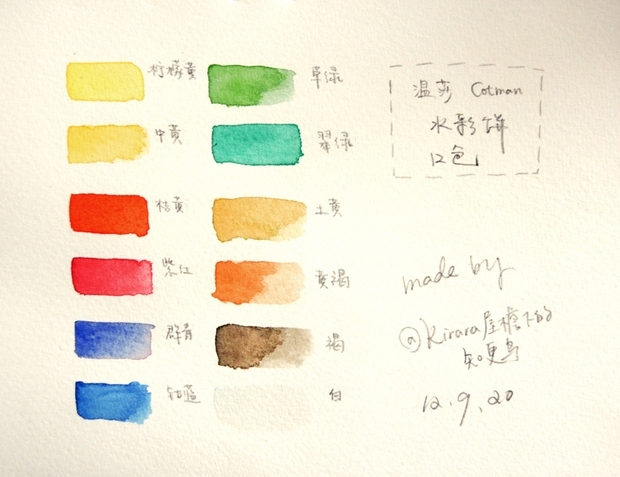 柠檬黄
中黄
桔黄
紫红
群青
钴蓝
草绿
翠绿
土黄
黄褐
褐
白
温莎 Cotman
水彩饼
12色
made by
@Kirara屋檐下的
知更鸟
12.9.20